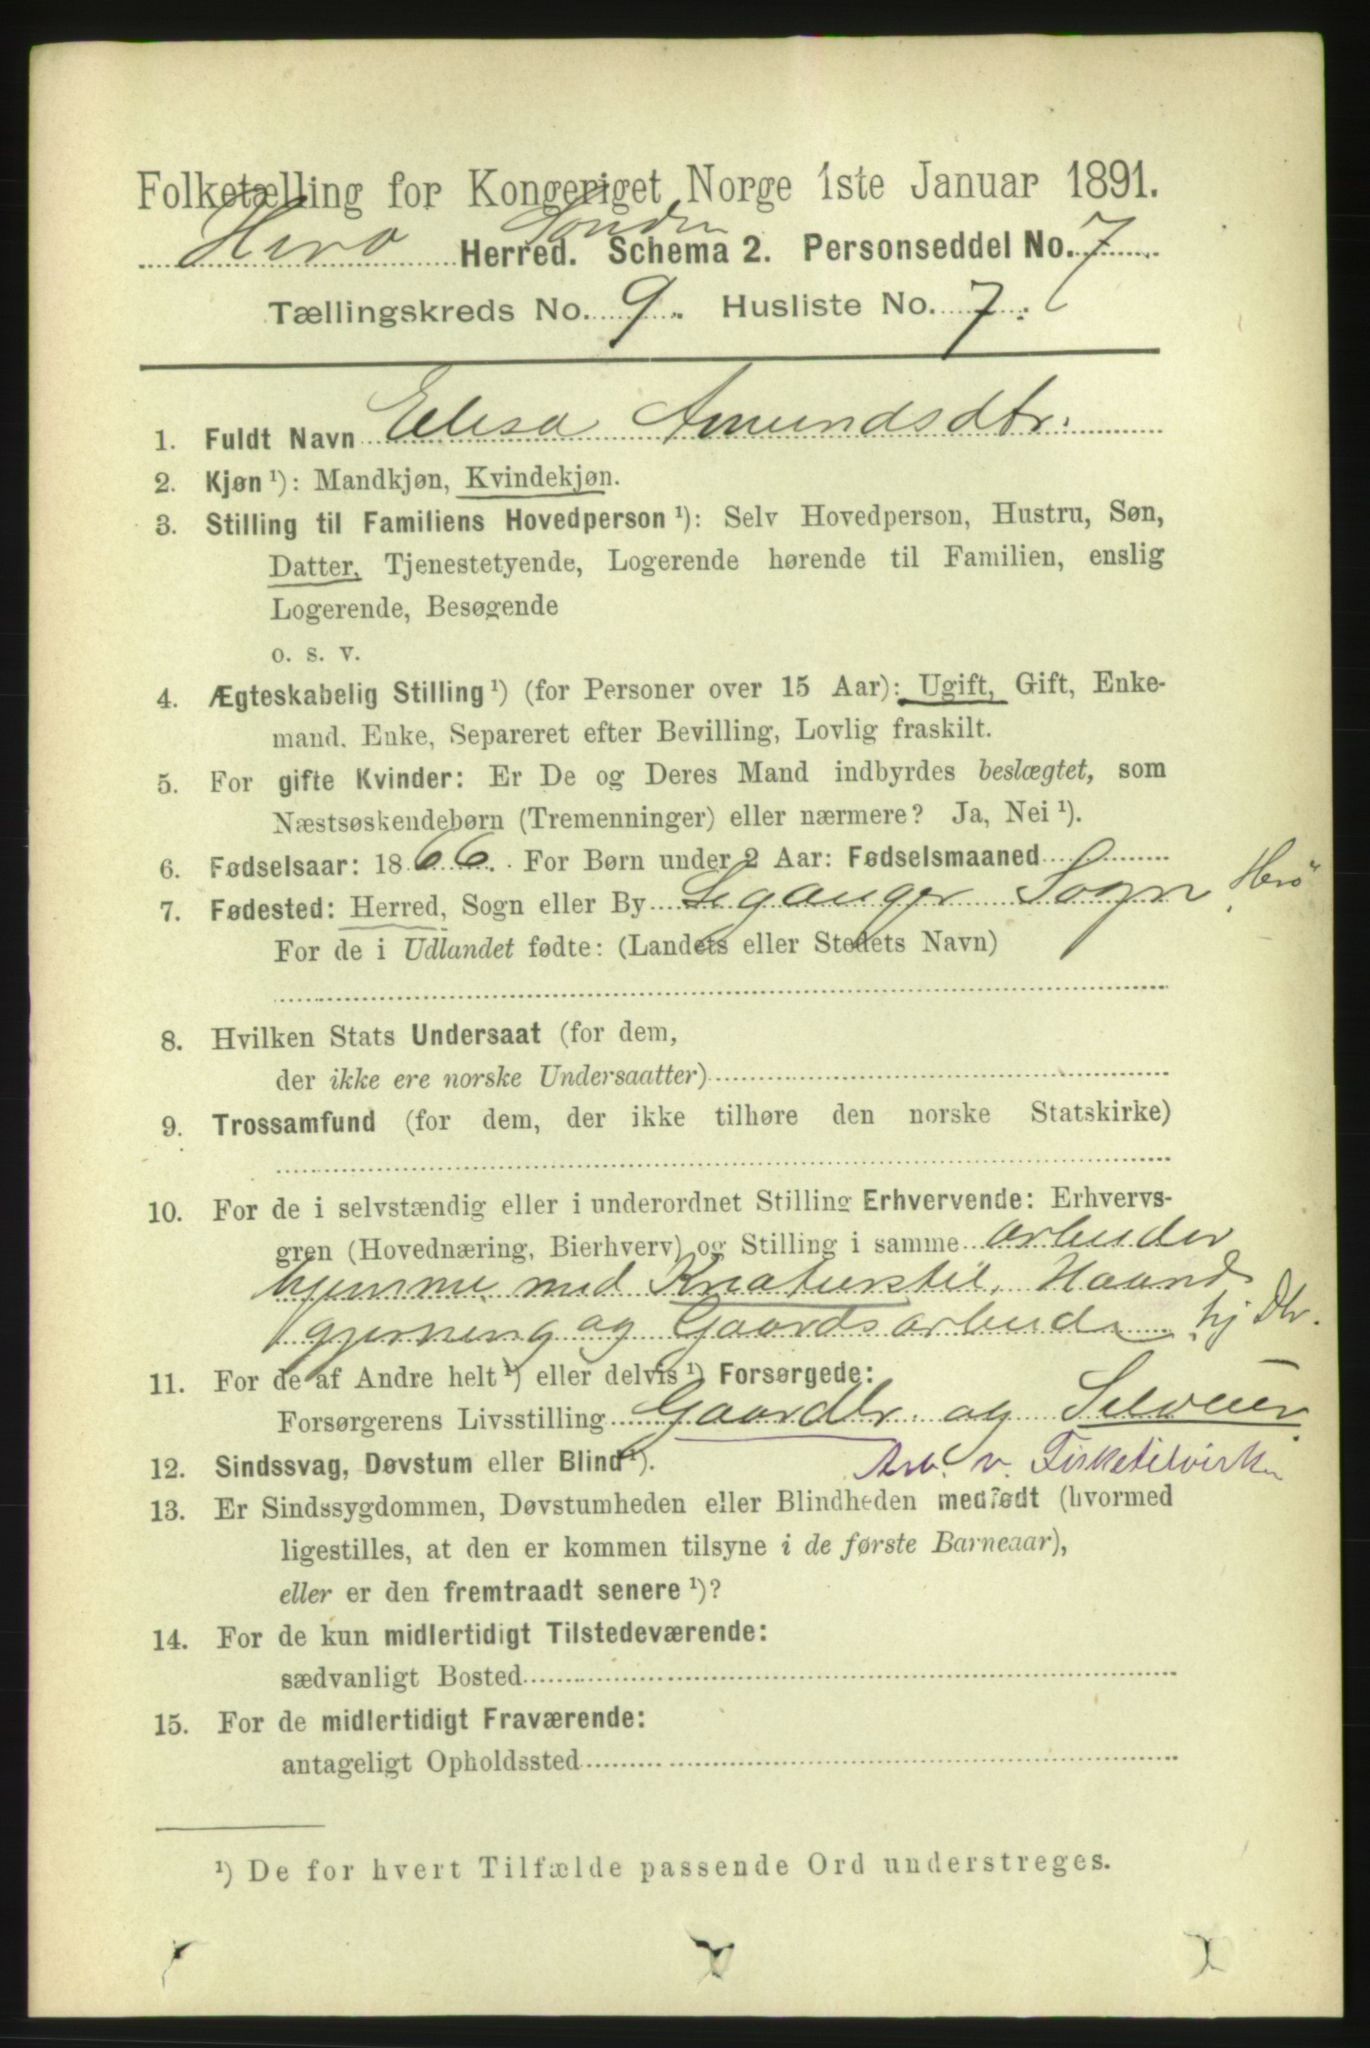 Folketælling for Kongeriget Norge 1ste Januar 1891.
Herö Søndre Herred. Schema 2. Personseddel No. 7
Tællingskreds No. 9. Husliste No. 7.
1. Fuldt Navn Elisa Amundsdtr.
2. Kjøn ¹): Mandkjøn, Kvindekjøn.
3. Stilling til Familiens Hovedperson ¹): Selv Hovedperson, Hustru, Søn,
Datter, Tjenestetyende, Logerende hørende til Familien, enslig
Logerende, Besøgende
o. s. v.
4. Ægteskabelig Stilling ¹) (for Personer over 15 Aar): Ugift, Gift, Enke-
mand, Enke, Separeret efter Bevilling, Lovlig fraskilt.
5. For gifte Kvinder: Er De og Deres Mand indbyrdes beslægtet, som
Næstsøskendebørn (Tremenninger) eller nærmere? Ja, Nei ¹).
6. Fødselsaar: 1866. For Børn under 2 Aar: Fødselsmaaned
7. Fødested: Herred, Sogn eller By Leganger Sogn, Herö
For de i Udlandet fødte: (Landets eller Stedets Navn)
8. Hvilken Stats Undersaat (for dem,
der ikke ere norske Undersaatter)
9. Trossamfund (for dem, der ikke tilhøre den norske Statskirke)
10. For de i selvstændig eller i underordnet Stilling Erhvervende: Erhvervs-
gren (Hovednæring, Bierhverv) og Stilling i samme arbeider
hjemme med Kreaturstel, Haand
gjerning og Gaardsarbeide hj Dtr.
11. For de af Andre helt ¹) eller delvis ¹) Forsørgede:
Forsørgerens Livsstilling Gaardbr. og Selveier
12. Sindssvag, Døvstum eller Blind ¹). Arb. v. Fisketilvirkn
13. Er Sindssygdommen, Døvstumheden eller Blindheden medfødt (hvormed
ligestilles, at den er kommen tilsyne i de første Barneaar),
eller er den fremtraadt senere ¹)?
14. For de kun midlertidigt Tilstedeværende:
sædvanligt Bosted
15. For de midlertidigt Fraværende:
antageligt Opholdssted
¹) De for hvert Tilfælde passende Ord understreges.